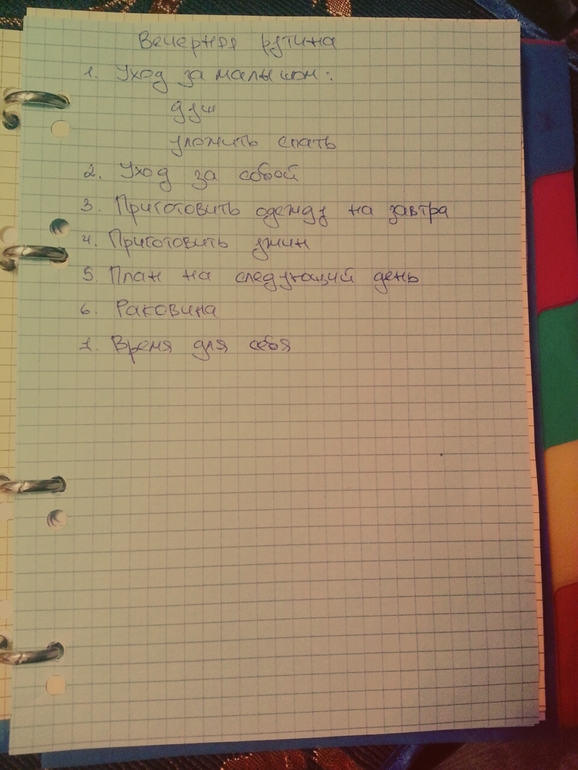 Вечерняя рутина
1. Уход за малышом:
душ
уложить спать
2. Уход за собой
3. Приготовить одежду на завтра
4. Приготовить ужин
5. План на следующий день
6. Раковина
7. Время для себя